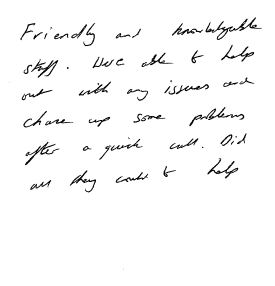 Friendly and knowledgeable
staff. Were able to help
out with any issues and
chase up some problems
after a quick call. Did
all they could to help